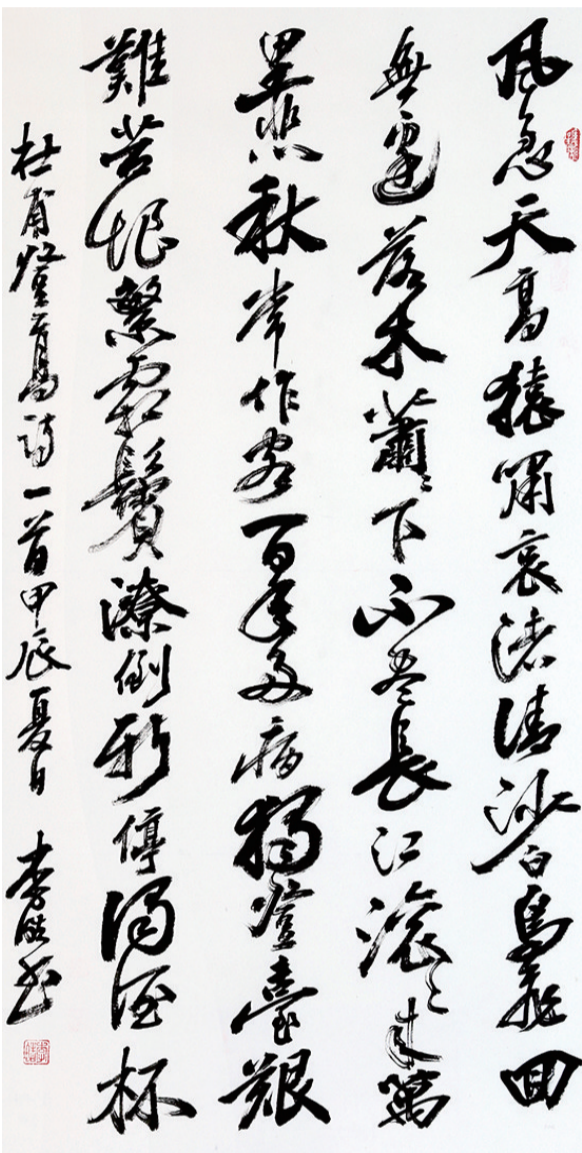 風急天高猿嘯哀渚清沙白鳥飛回
無邊落木蕭〻下不盡長江滾〻來萬
里悲秋常作客百年多病獨登臺艱
難苦恨繁霜鬢潦倒新停濁酒杯
杜甫登高詩一首甲辰夏日 李書